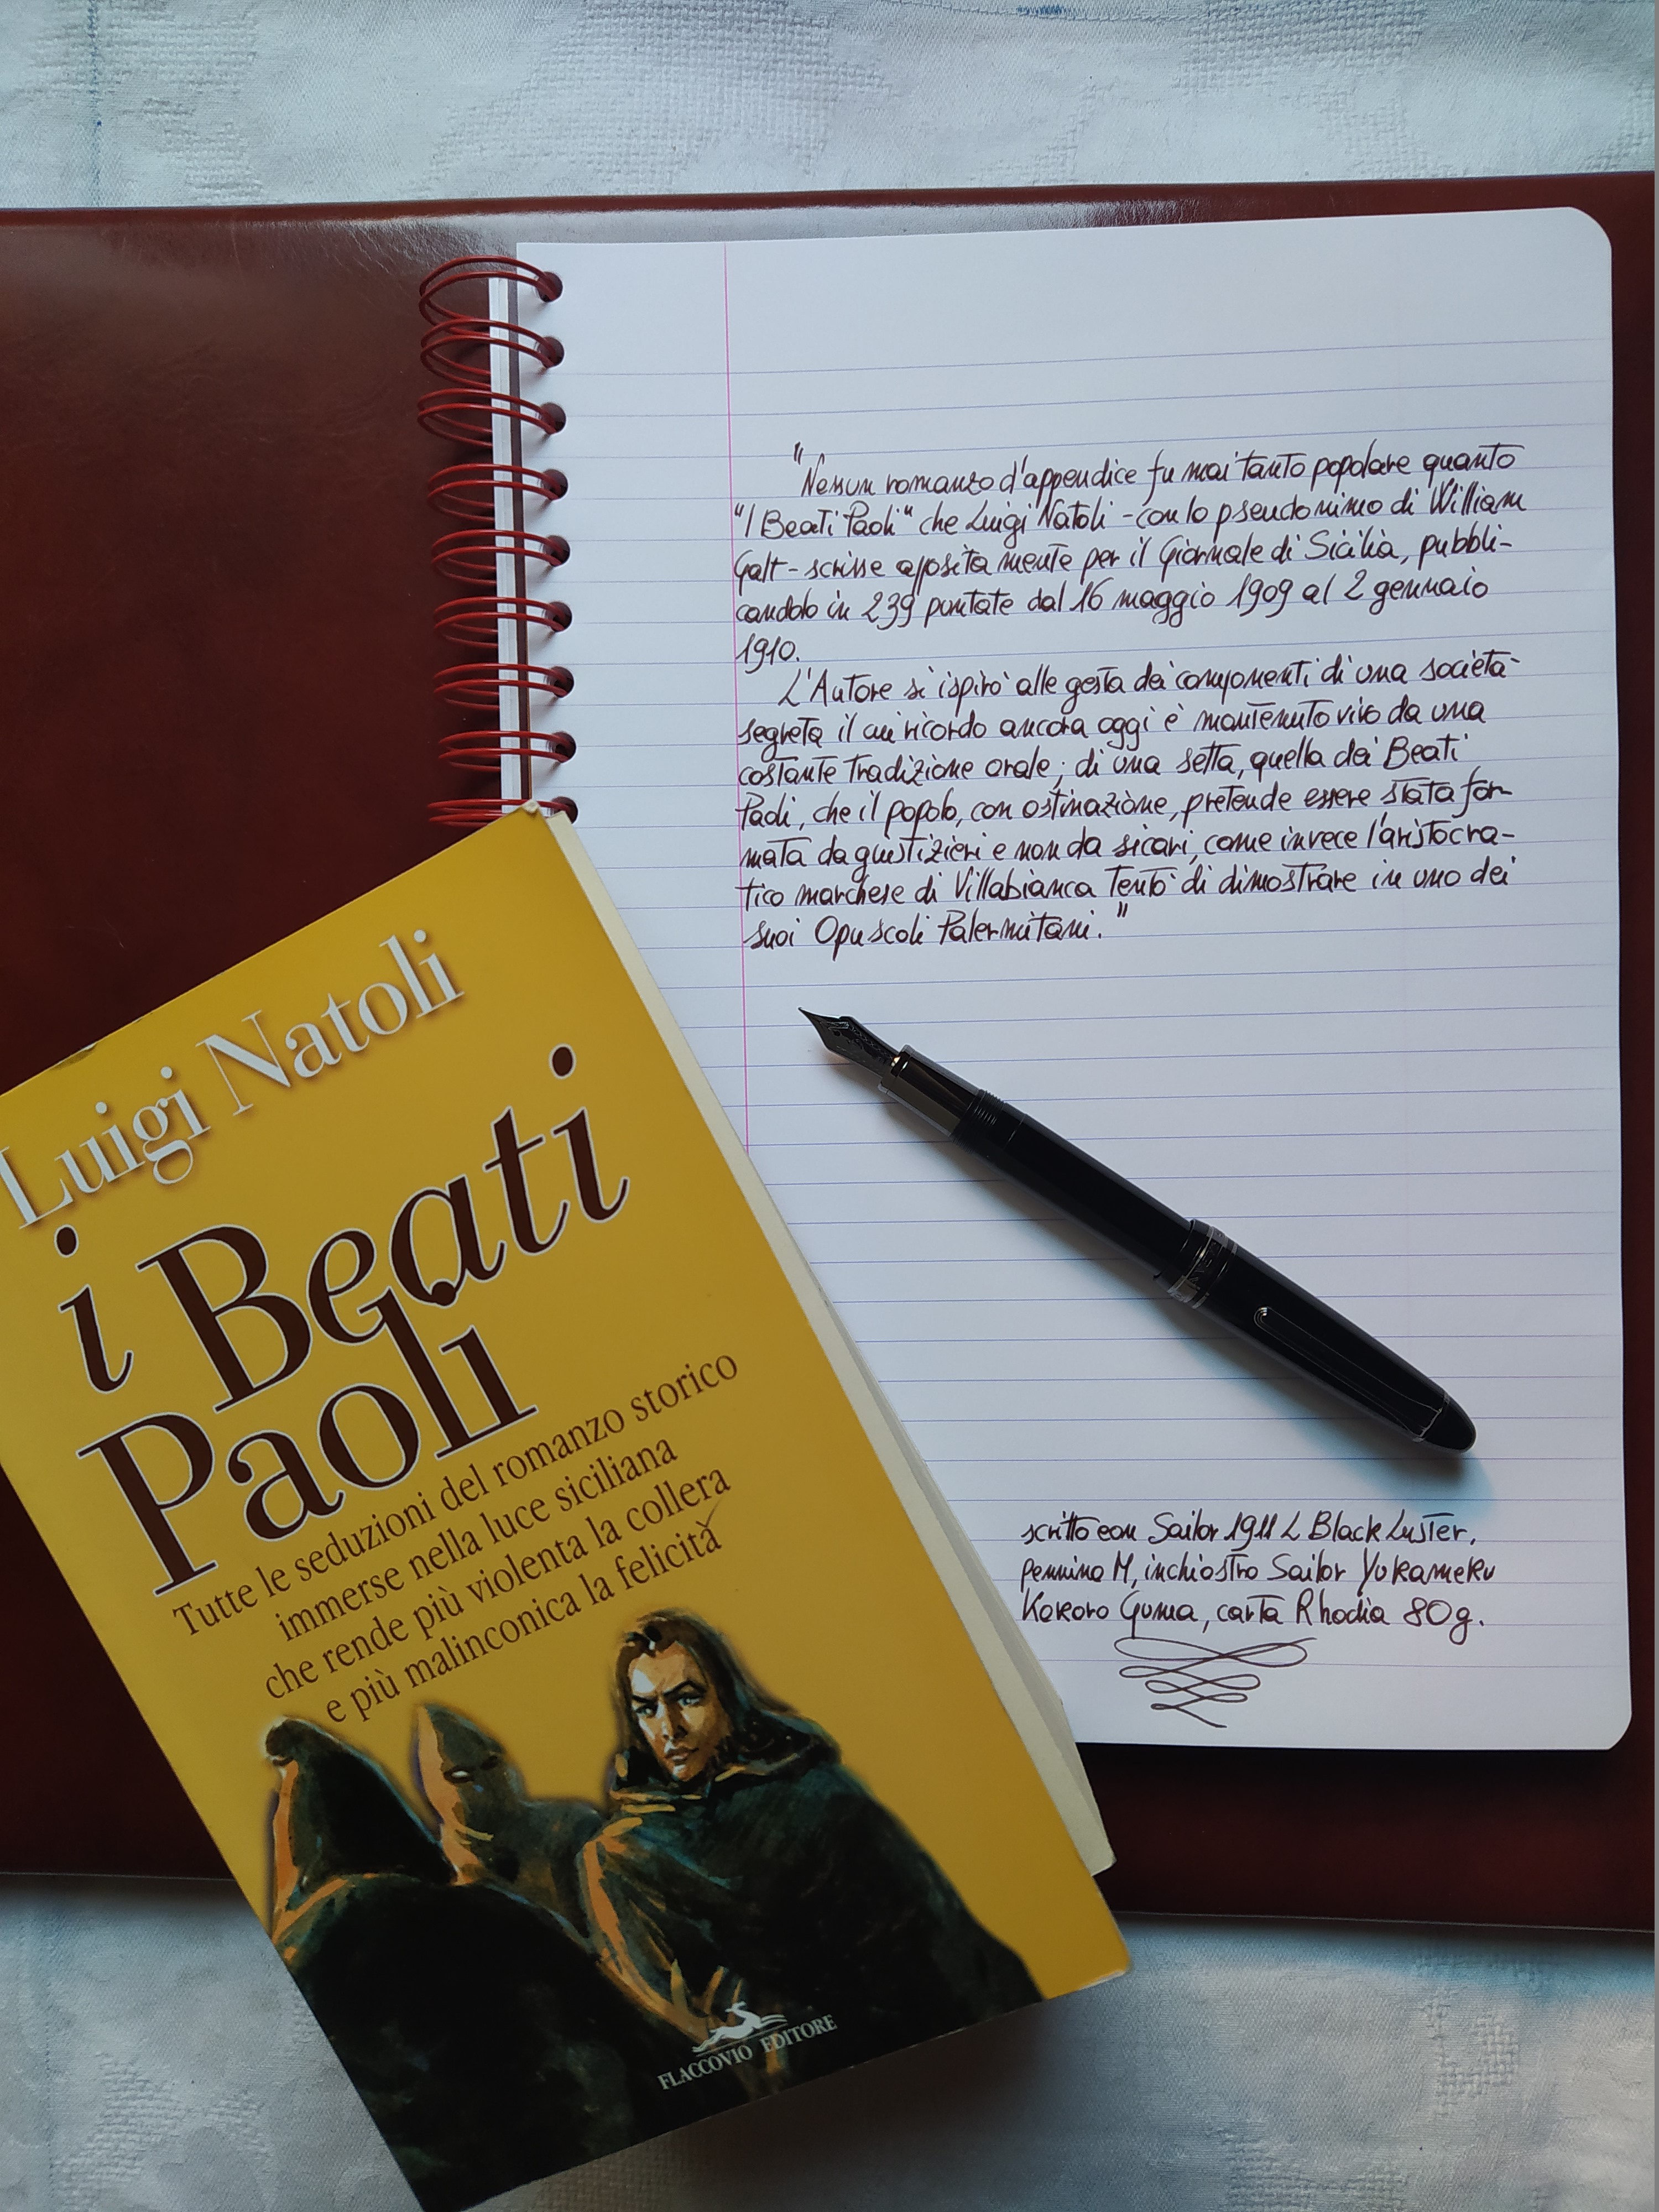 "Nessun romanzo d'appendice fu mai tanto popolare quanto
"I Beati Paoli" che Luigi Natoli - con lo pseudonimo di William
Galt - scrisse appositamente per il Giornale di Sicilia, pubbli-
candolo in 239 puntate dal 16 maggio 1909 al 2 gennaio
1910.
L'Autore si ispirò alle gesta dei componenti di una società
segreta il cui ricordo ancora oggi è mantenuto vivo da una
costante tradizione orale; di una setta, quella dei Beati
Paoli, che il popolo, con ostinazione, pretende essere stata for-
mata da giustizieri e non da sicari, come invece l'aristocra-
tico marchese di Villabianca tentò di dimostrare in uno dei
suoi Opuscoli Palermitani."
scritto con Sailor 1911 L Black Luster,
pennino M, inchiostro Sailor Yukameku
Kokoro Guma, carta Rhodia 80g.
Luigi Natoli
i Beati
Paoli
Tutte le seduzioni del romanzo storico
immerse nella luce siciliana
che rende più violenta la collera
e più malinconica la felicità
FLACCOVIO EDITORE